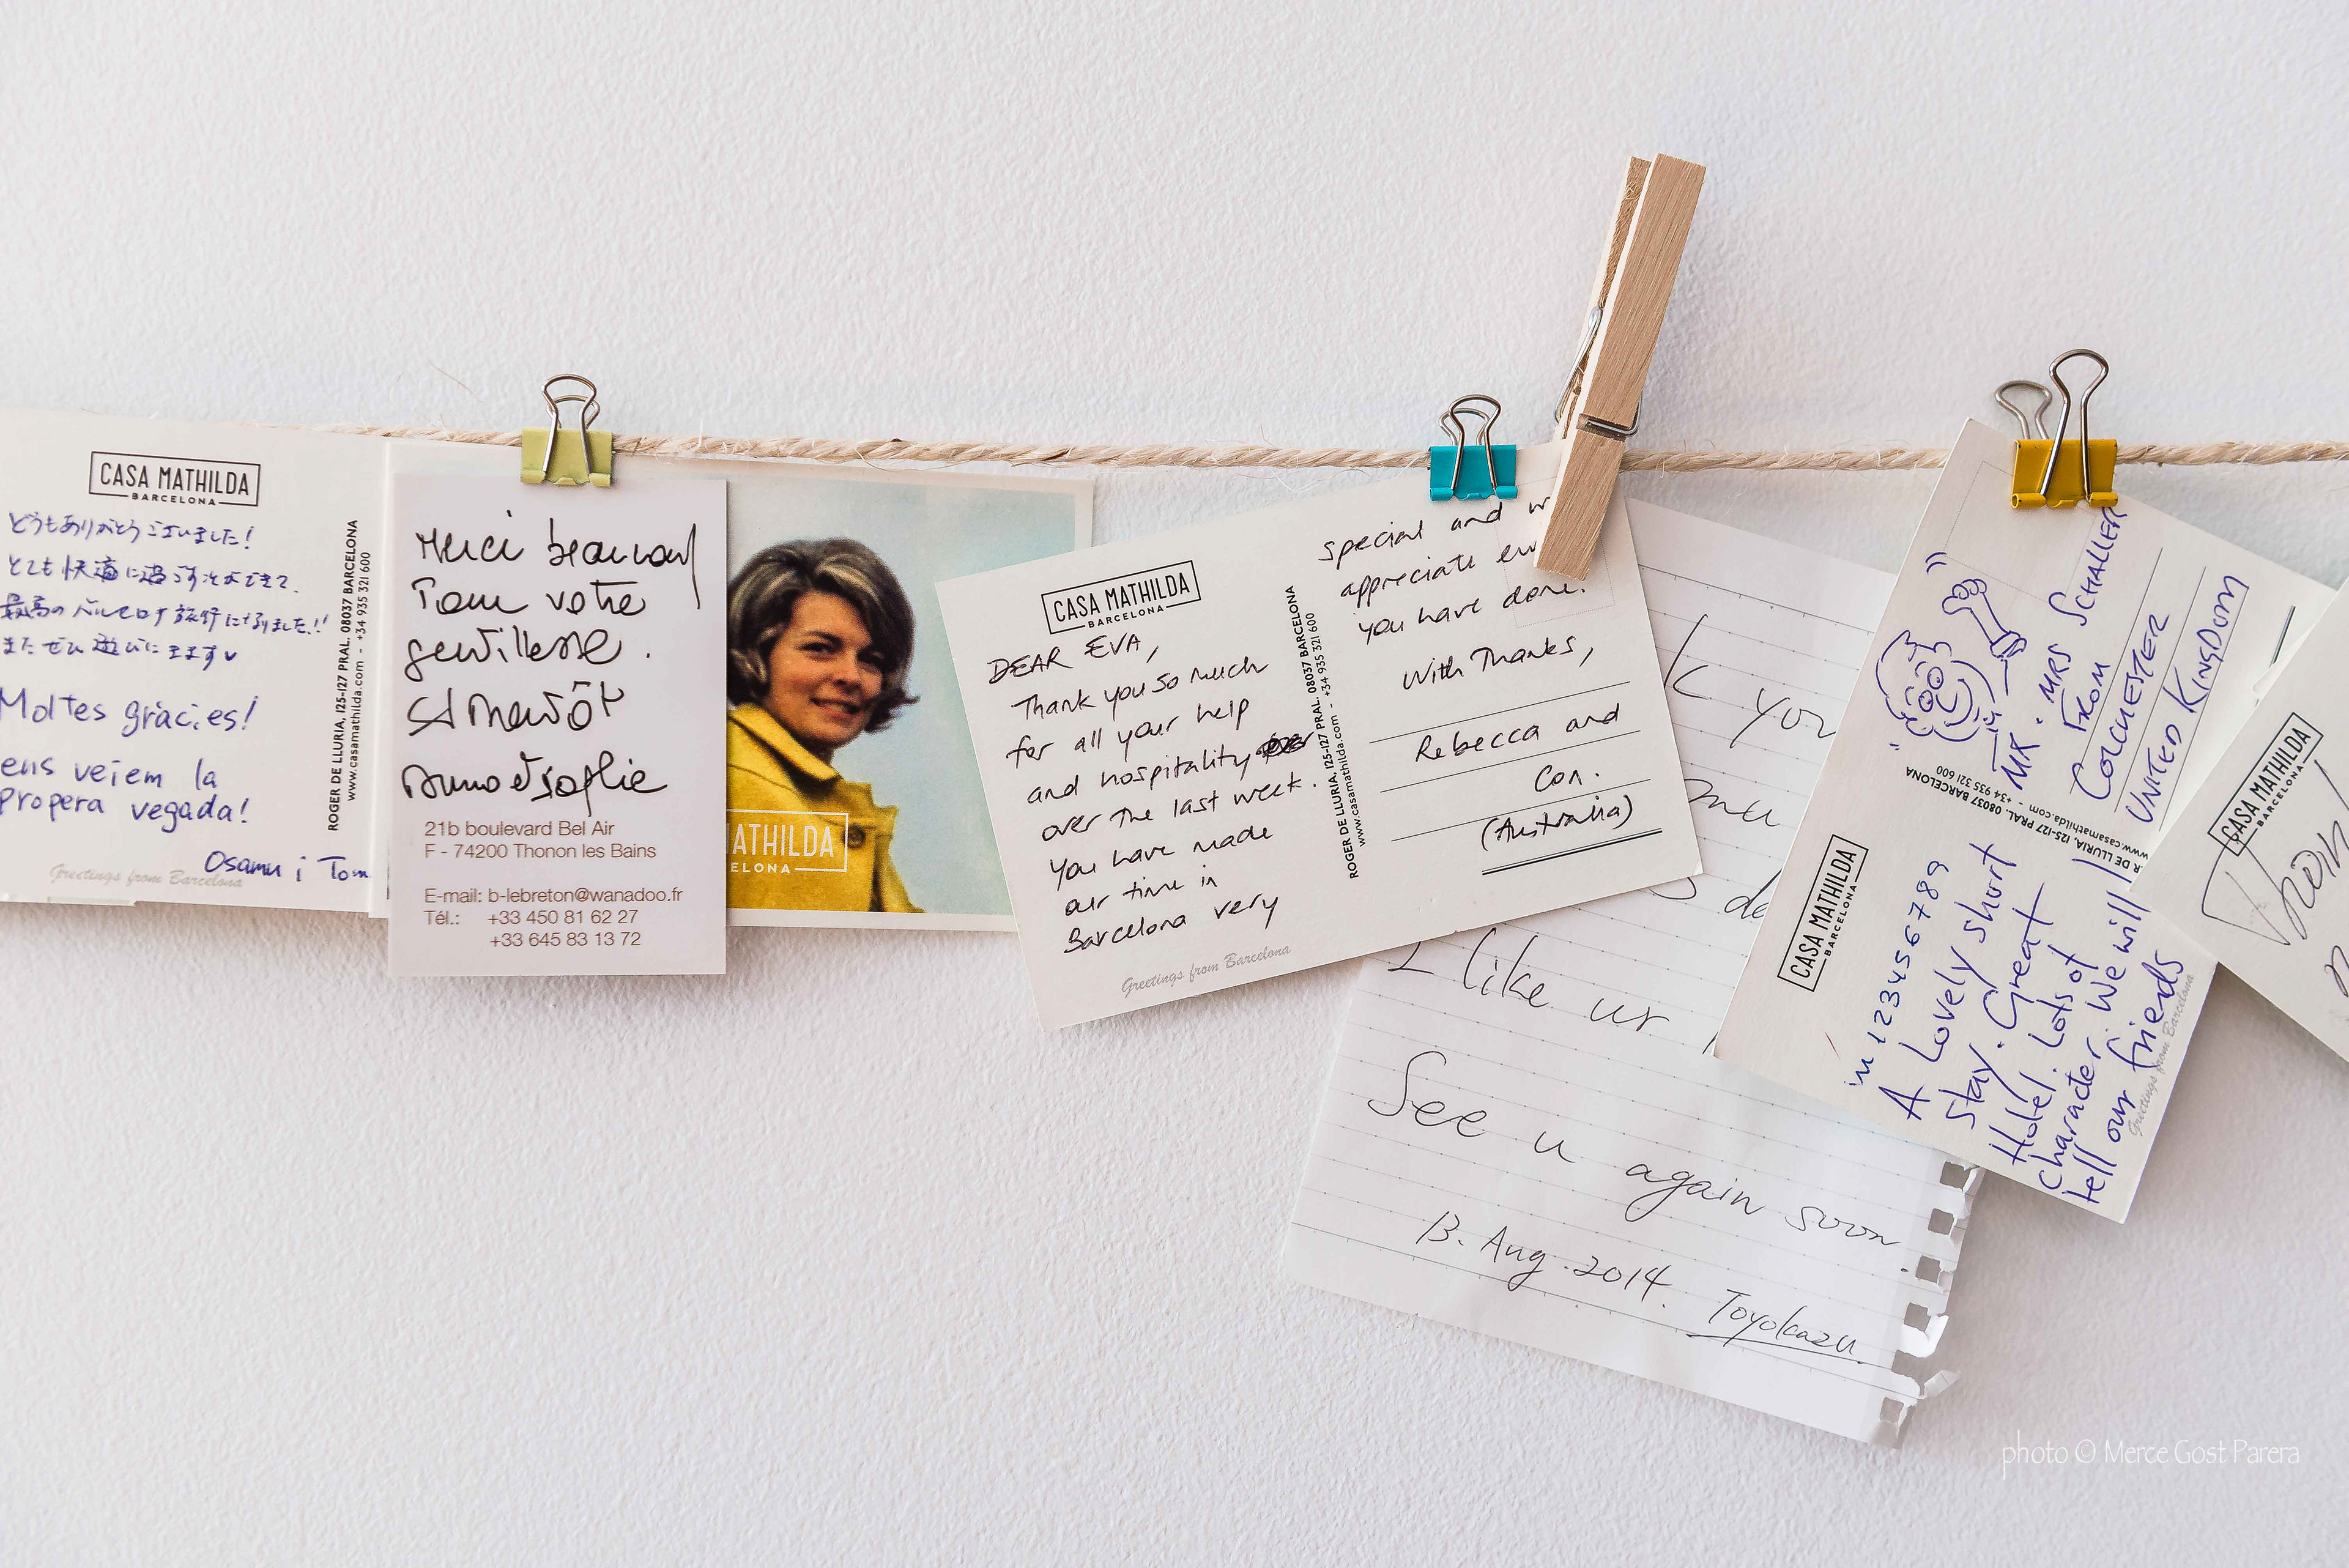 CASA MATHILDA
BARCELONA
どうもありがとうございました!
とても快適に過ごすことができて、
最高のバルセロナ旅行になりました!!
またぜひ遊びにきます
Moltes gràcies!
ens veiem la
propera vegada!
Osamu i Tom
Greetings from Barcelona
ROGER DE LLURIA, 125-127 PRAL. 08037 BARCELONA
www.casamathilda.com - +34 935 321 600
Merci beaucoup
Pour votre
gentillesse.
Anne et Sophie
21b boulevard Bel Air
F - 74200 Thonon les Bains
E-mail: b-lebreton@wanadoo.fr
Tél.: +33 450 81 62 27
+33 645 83 13 72
ATHILDA
ELONA
CASA MATHILDA
BARCELONA
DEAR EVA,
Thank you so much
for all your help
and hospitality
over the last week.
You have made
our time in
Barcelona very
Greetings from Barcelona
ROGER DE LLURIA, 125-127 PRAL. 08037 BARCELONA
www.casamathilda.com - +34 935 321 600
special and w
appreciate
you have done.
With Thanks,
Rebecca and
Con.
(Australia)
k you
I like ur
See u again soon.
13. Aug. 2014.
Toyokazu
MR. MRS SCHALLER
FROM
COLCHESTER
UNITED KINGDOM
R DE LLURIA, 125-127 PRAL. 08037 BARCELONA
www.casamathilda.com - +34 935 321 600
CASA MATHILDA
BARCELONA
in 123456789
A Lovely short
stay. Great
Hotel. Lots of
character. We will
tell our friends
Greetings from Barcelona
CASA MATHILDA
BARCELONA
photo © Merce Gost Parera